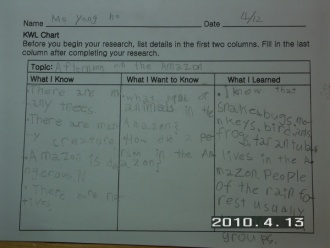 Name Mo Yong ho Date 12/12
KWL Chart
Before you begin your research, list details in the first two columns. Fill in the last
column after completing your research.
Topic: Afternoon on the Amazon
What I Know
What I Want to Know
What I Learned
·There are m
any trees.
·There are man
y creature
·Amazon is da
ngerous.
·There are na
tives.
·What kind of
animals in the
Amazon?
How do
in the Am
azon?
·I know that
snake, bugs, mo
nkeys, bird, and
frog & tarantula
lives in the A
mazon. People
of the rain fo
rest usually
groups.
2010.4.13